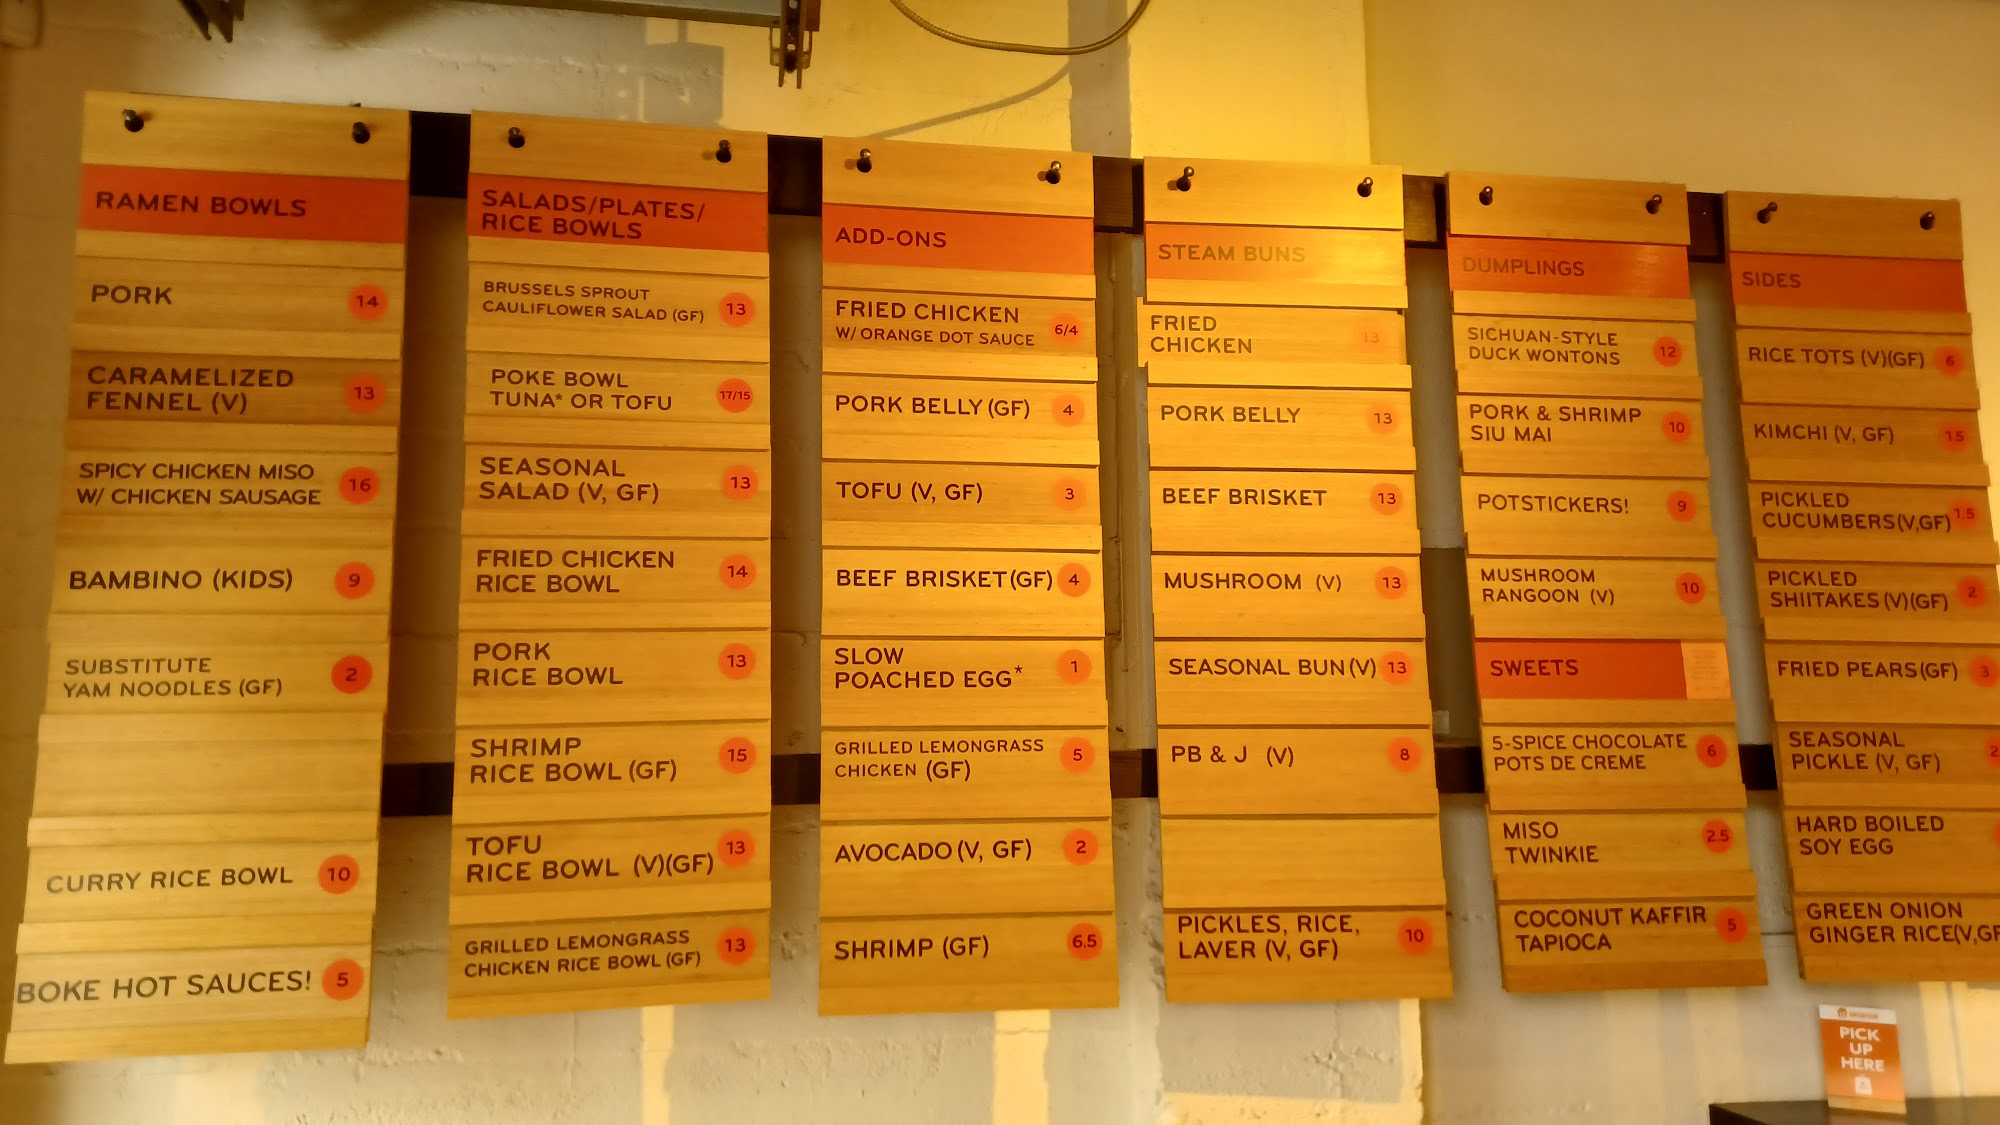 RAMEN BOWLS
PORK 14
CARAMELIZED
FENNEL (V) 13
SPICY CHICKEN MISO
W/ CHICKEN SAUSAGE 16
BAMBINO (KIDS) 9
SUBSTITUTE
YAM NOODLES (GF) 2
CURRY RICE BOWL 10
BOKE HOT SAUCES! 5
SALADS/PLATES/
RICE BOWLS
BRUSSELS SPROUT
CAULIFLOWER SALAD (GF) 13
POKE BOWL
TUNA* OR TOFU 17/15
SEASONAL
SALAD (V, GF) 13
FRIED CHICKEN
RICE BOWL 14
PORK
RICE BOWL 13
SHRIMP
RICE BOWL (GF) 15
TOFU
RICE BOWL (V)(GF) 13
GRILLED LEMONGRASS
CHICKEN RICE BOWL (GF) 13
ADD-ONS
FRIED CHICKEN
W/ ORANGE DOT SAUCE 6/4
PORK BELLY (GF) 4
TOFU (V, GF) 3
BEEF BRISKET (GF) 4
SLOW
POACHED EGG* 1
GRILLED LEMONGRASS
CHICKEN (GF) 5
AVOCADO (V, GF) 2
SHRIMP (GF) 6.5
STEAM BUNS
FRIED
CHICKEN 13
PORK BELLY 13
BEEF BRISKET 13
MUSHROOM (V) 13
SEASONAL BUN (V) 13
PB & J (V) 8
PICKLES, RICE,
LAVER (V, GF) 10
DUMPLINGS
SICHUAN-STYLE
DUCK WONTONS 12
PORK & SHRIMP
SIU MAI 10
POTSTICKERS! 9
MUSHROOM
RANGOON (V) 10
SWEETS
5-SPICE CHOCOLATE
POTS DE CREME 6
MISO
TWINKIE 2.5
COCONUT KAFFIR
TAPIOCA 5
SIDES
RICE TOTS (V)(GF) 6
KIMCHI (V, GF) 1.5
PICKLED
CUCUMBERS (V,GF) 1.5
PICKLED
SHIITAKES (V)(GF) 2
FRIED PEARS (GF) 3
SEASONAL
PICKLE (V, GF) 2
HARD BOILED
SOY EGG
GREEN ONION
GINGER RICE (V,GF
GRUBHUB
PICK
UP
HERE